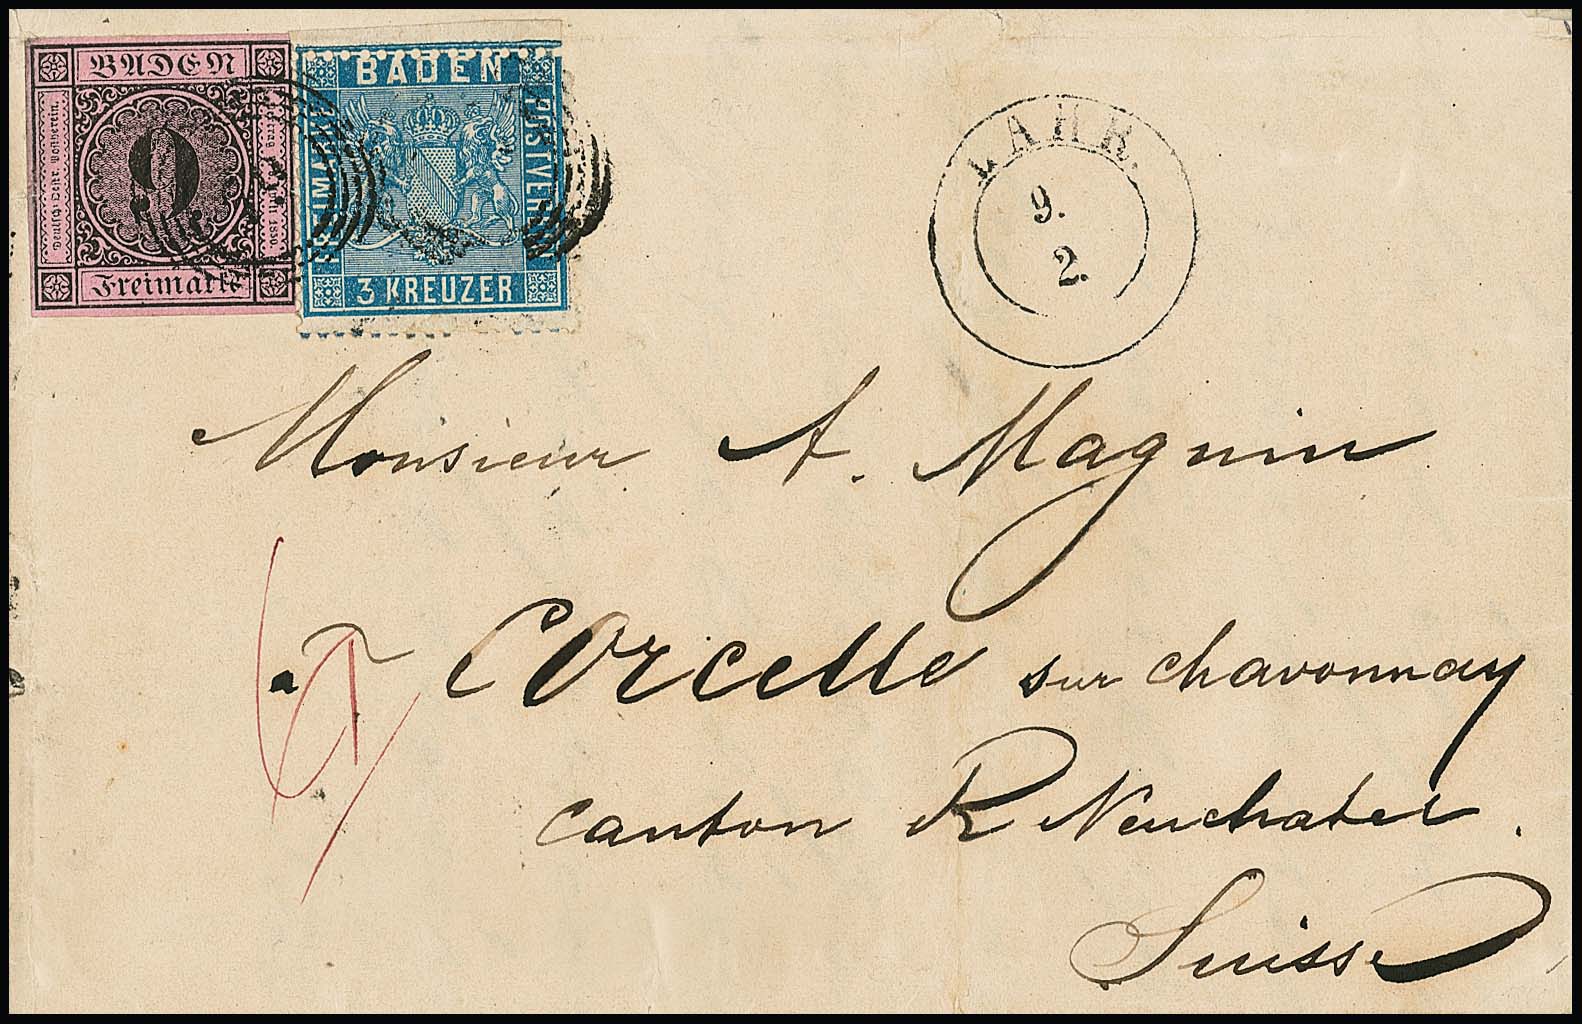 BADEN
Deutsch-Oestr. Postverein.
9
Freimarke
BADEN
FREIMARKE
POSTVEREIN
3 KREUZER
LAHR.
9.
2.
Monsieur A. Magnin
a Corcelle sur chavonnay
canton Neuchatel.
Suisse